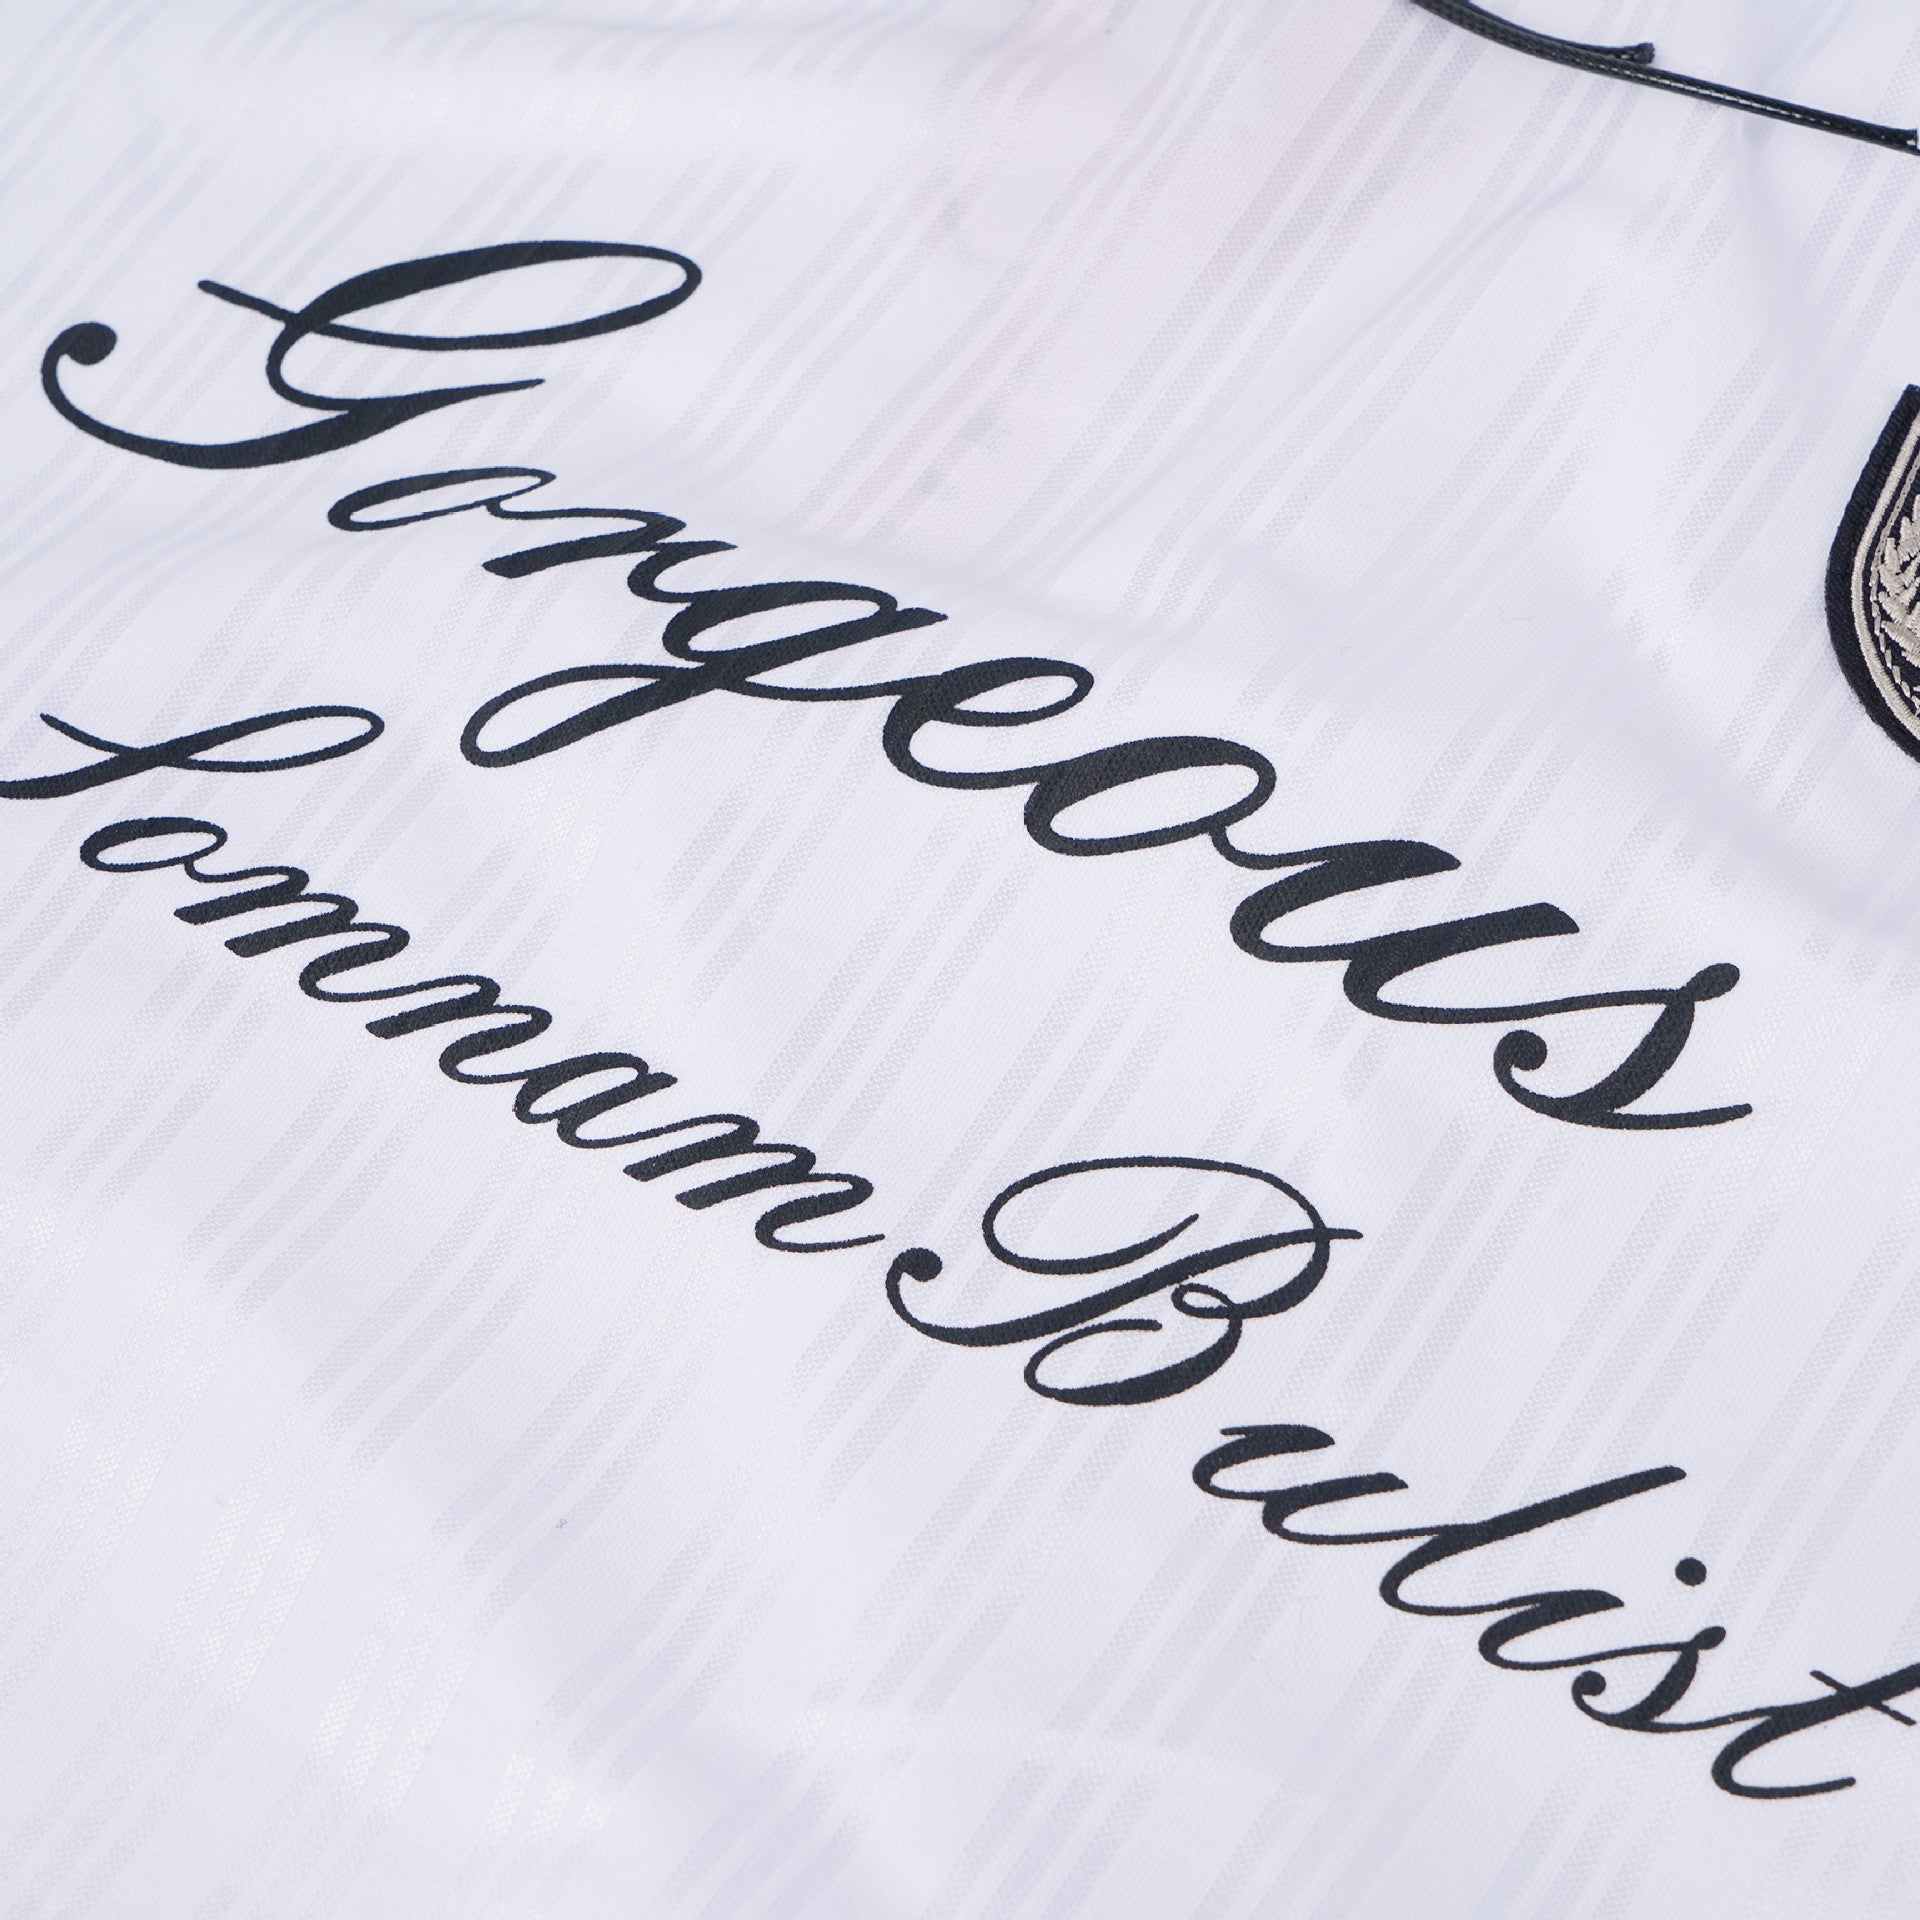 Gorgeous
SomnamBulist